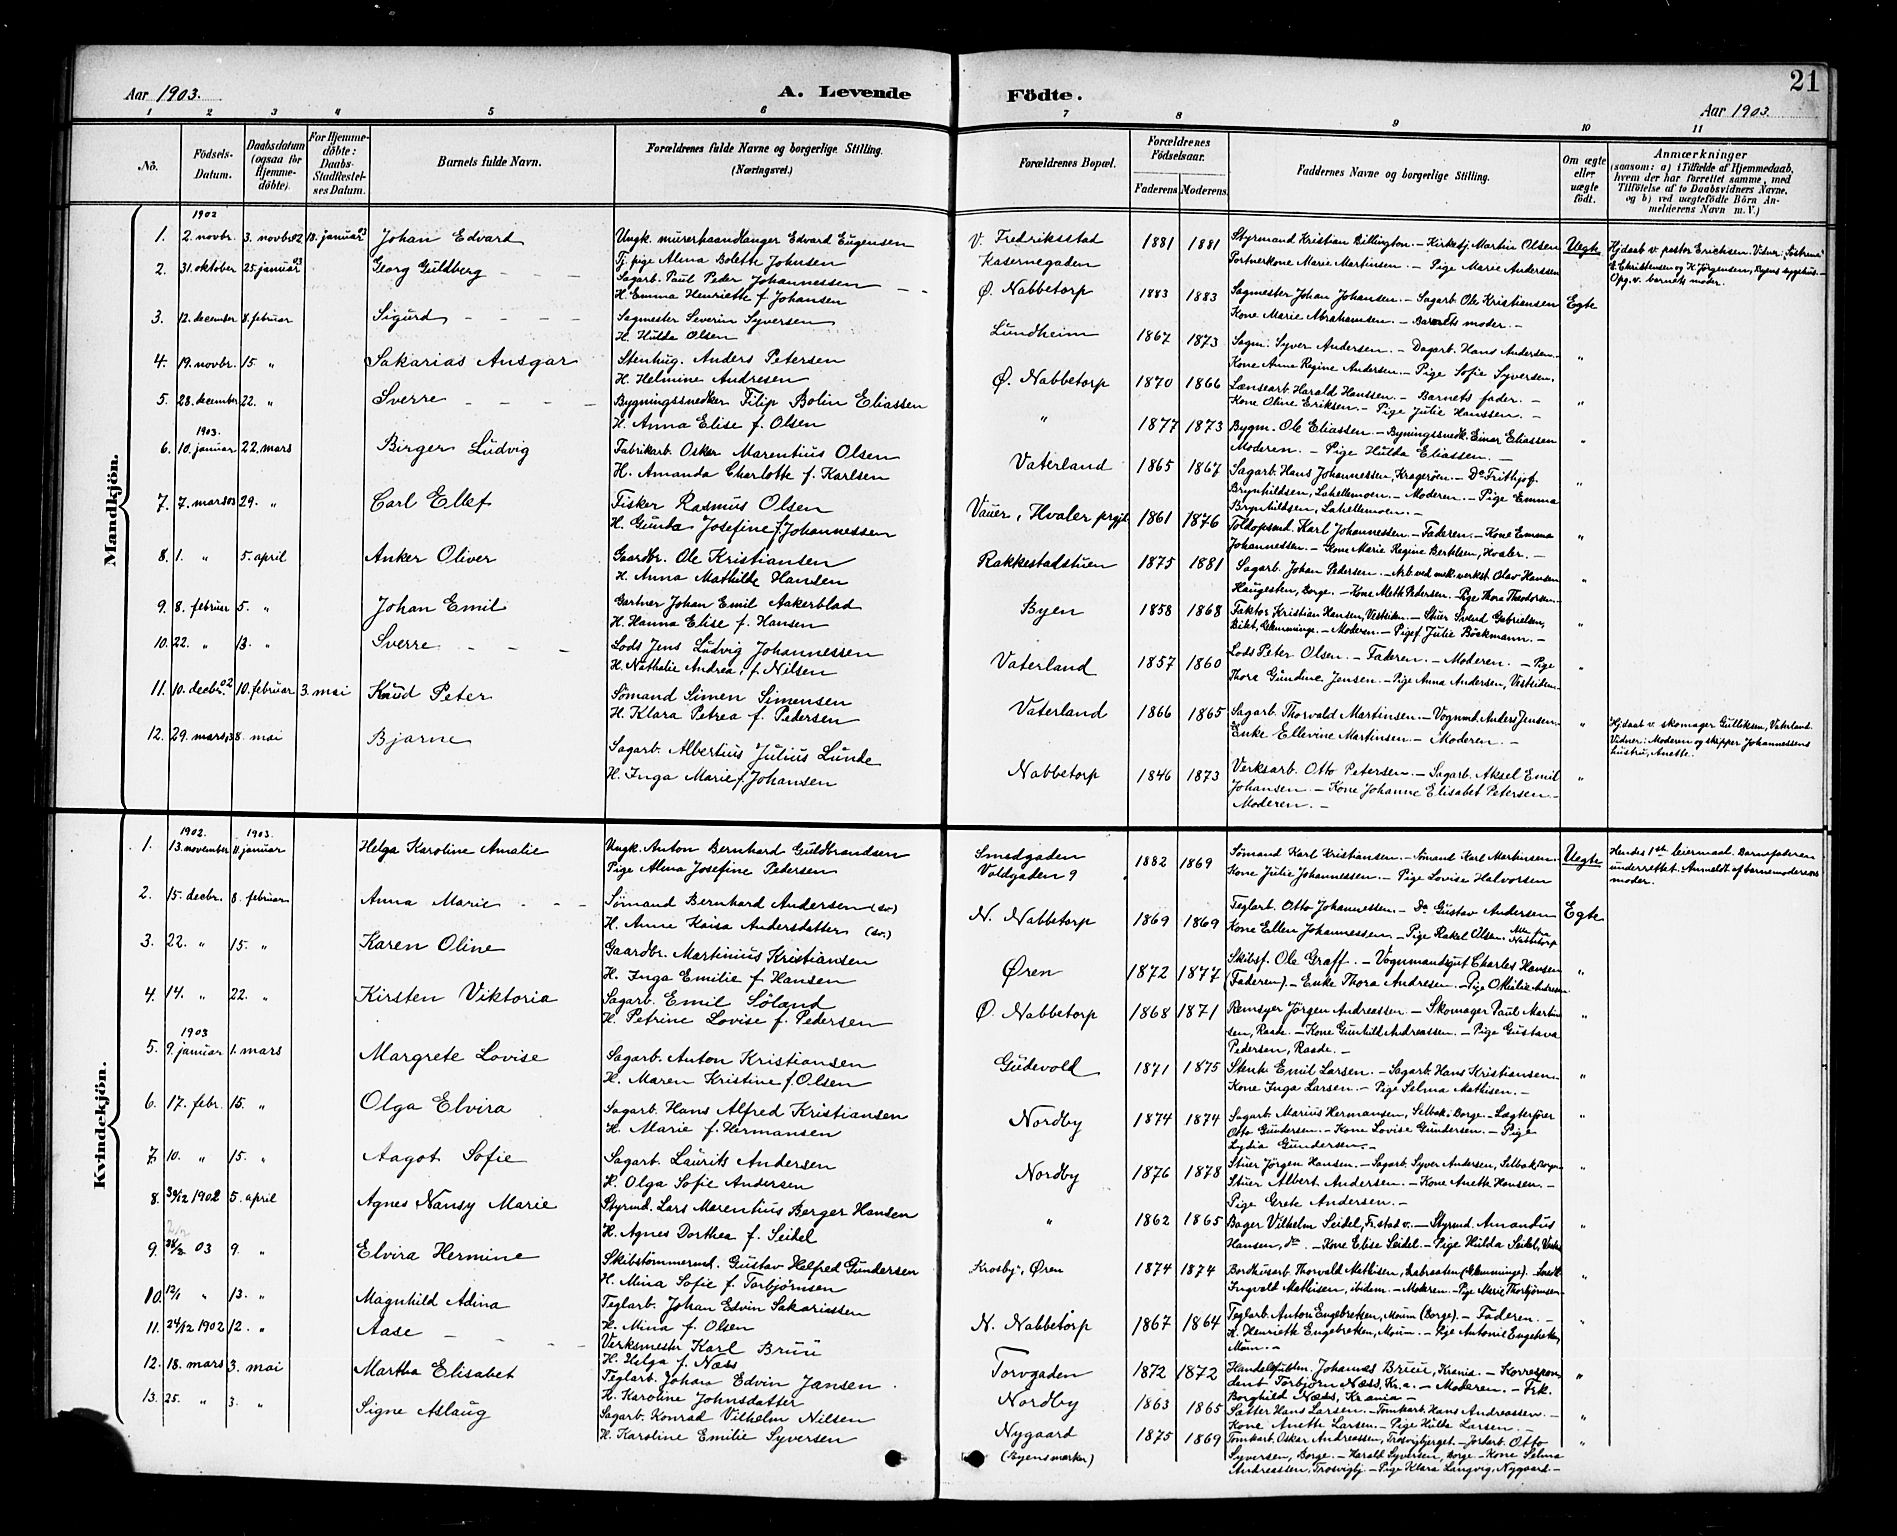 21
Aar 1903.
A. Levende
Födte.
Aar 1903.
1 2 3 4 5 6 7 8 9 10 11
No.
Födsels-Datum.
Daabsdatum (ogsaa for Hjemmedöbte).
For Hjemmedöbte: Daabs-Stadfestelses Datum.
Barnets fulde Navn.
Forældrenes fulde Navne og borgerlige Stilling. (Næringsvei.)
Forældrenes Bopæl.
Forældrenes Födselsaar.
Faderens. Moderens.
Faddernes Navne og borgerlige Stilling.
Om ægte eller uægte födt.
Anmærkninger
(saasom: a) i Tilfælde af Hjemmedaab, hvem der har forrettet samme, med Tilföielse af to Daabsvidners Navne, og b) ved uægtefödte Börn Anmelderens Navn m. V.)
Mandkjön.
1902
1. 2. novbr. 3. novbr 02 18. januar 03 Johan Edvard
Ungk. murerhaandlanger Edvard Eugensen
Tj. pige Alma Bolette Johnsen
V. Fredriksstad
Kasernegaden
1881 1881
Styrmand Kristian Billington. — Kirketj. Martin Olsen
Portnerkone Marie Martinsen. — Pige Marie Anderssen
Uegte
Hjdaab v. pastor Erichsen. Vidner: Söstrene
E. Christensen og K. Jörgensen, Byens sygehus. —
Opg. v. barnets moder.
2. 31. oktober 25. januar 03 Georg Guldberg
Sagarb. Paul Peder Johannessen
H. Emma Henriette f. Johansen
Ø. Nabbetorp
1883 1883
Sagmester Johan Johansen. — Sagarb. Ole Kristiansen
Kone Marie Abrahamsen. — Barnets moder. —
Egte
3. 12. december 8. februar Sigurd
Sagmester Severin Syversen
H. Hulda Olsen
Lundheim
1867 1873
Sagm. Syver Andersen. — Dagarb. Hans Andersen.
Kone Anne Regine Andersen. — Pige Sofie Syversen.
"
4. 19. novbr. 15. " Sakarias Ansgar
Stenhug. Anders Petersen
H. Helmine Andresen
Ø. Nabbetorp
1870 1866
Lænsearb. Harald Hanssen. — Barnets fader. —
Kone Oline Eriksen. — Pige Julie Hanssen. —
"
5. 28. december 22. " Sverre
Bygningssnedker Filip Bolin Eliassen
H. Anna Elise f. Olsen
"
1877 1873
Bygm. Ole Eliassen. — Bygningssnedk. Einar Eliassen
Moderen. — Pige Hulda Eliassen. —
"
1903.
6. 10. januar 22. mars Birger Ludvig
Fabrikarb. Oskar Marentius Olsen
H. Amanda Charlotte f. Karlsen
Vaterland
1865 1867
Sagarb. Hans Johannessen, Kragerøen. — Do Frithjof
Brynhildsen, Lahellemoen. — Moderen. — Pige Emma
Brynhildsen, Lahellemoen. —
"
7. 7. mars 03 29. " Carl Ellef
Fisker Rasmus Olsen
H. Gunda Josefine f. Johannessen
Vauer, Hvaler prgjl.
1861 1876
Toldopsmd. Karl Johannessen. — Faderen. — Kone Emma
Johannessen. — Kone Marie Regine Bertelsen, Hvaler. —
"
8. 1. " 5. april Anker Oliver
Gaardbr. Ole Kristiansen
H. Anna Mathilde Hansen
Rakkestadstuen
1875 1881
Sagarb. Johan Pedersen. — Arb. ved mek. verkst. Olav Hansen
Haugesten, Borge. — Kone Mette Pedersen. — Pige Thora Theodorsen. —
"
9. 8. februar 5. " Johan Emil
Gartner Johan Emil Aakerblad
H. Hanna Elise f. Hansen
Byen
1858 1868
Faktor Kristian Hansen, Vestsiden. — Stuer Svend Gabrielsen,
Bilet, Glemminge. — Moderen. — Pige f. Julie Böckmann. —
"
10. 22. " 13. " Sverre
Lods Jens Ludvig Johannessen
H. Nathalie Andrea, f. Nilsen
Vaterland
1857 1860
Lods Peter Olsen. — Faderen. — Moderen. — Pige
Thora Gundine Jensen. — Pige Anna Andersen, Vestsiden.
"
11. 10. decbr. 02 10. februar 3. mai Knud Peter
Sömand Simen Simensen
H. Klara Petrea f. Pedersen
Vaterland
1866 1865
Sagarb. Thorvald Martinsen. — Vognmd. Anders Jensen.
Enke Ellevine Martinsen — Moderen. —
"
Hjdaab v. skomager Gulliksen, Vaterland.
Vidner: Moderen og skipper Johannessens
hustru, Anette.
12. 29. mars 03 8. mai Bjarne
Sagarb. Albertius Julius Lunde
H. Inga Marie f. Johansen
Nabbetorp
1846 1873
Verksarb. Otto Petersen. — Sagarb. Aksel Emil
Johansen. — Kone Johanne Elisabet Petersen. —
Moderen. —
"
Kvindekjön.
1902. 1903.
1. 13. november 11. januar Helga Karoline Amalie
Ungk. Anton Bernhard Guldbrandsen
Pige Alma Josefine Pedersen
Smedgaden
Voldgaden 9
1882 1869
Sömand Karl Kristiansen. — Sömand Karl Martinsen.
Kone Julie Johannessen. — Pige Lovise Halvorsen
Uegte
Hendes 1ste leiermaal. Barnefaderen
underrettet. Anmeldt af barnemoderens
moder.
2. 15. decbr. 8. februar Anna Marie
Sömand Bernhard Andersen (sv.)
H. Anna Kaisa Andersdatter (sv.)
N. Nabbetorp
1869 1869
Teglarb. Otto Johannessen. — Do Gustav Andersen
Kone Ellen Johannessen. — Pige Rakel Olsen. Alle fra Nabbetorp
Egte
3. 22. " 15. " Karen Oline
Gaardbr. Martinius Kristiansen
H. Inga Emilie f. Hansen
Øren
1872 1877
Skibsf. Ole Graff. — Vognmandsgut Charles Hansen
(Faderen). — Enke Thora Andresen. — Pige Otilie Andresen
"
4. 14. " 22. " Kirsten Viktoria
Sagarb. Emil Söland
H. Petrine Lovise f. Pedersen
Ø. Nabbetorp
1868 1871
Remsyer Jörgen Andreassen. — Skomager Paul Martin
sen, Raade. — Kone Gunhild Andreassen. — Pige Gustava
Pedersen, Raade. —
"
1903
5. 9. januar 1. mars Margrete Lovise
Sagarb. Anton Kristiansen
H. Maren Kristine f. Olsen
Gudevold
1871 1875
Stenh. Emil Larsen. — Sagarb. Hans Kristiansen.
Kone Inga Larsen. — Pige Selma Mathisen. —
"
6. 17. febr. 15. " Olga Elvira
Sagarb. Hans Alfred Kristiansen
H. Marie f. Hermansen
Nordby
1874 1874
Sagarb. Marius Hermansen, Selbak i Borge. — Lægterfører
Otto Gundersen. — Kone Lovise Gundersen. — Pige
Lydia Gundersen. —
"
7 10. " 15. " Aagot Sofie
Sagarb. Laurits Andersen
H. Olga Sofie Andersen
Nordby
1876 1878
Stuer Jörgen Hansen. — Sagarb. Syver Andersen, Selbak, Borge.
Stuer Albert Andersen. — Kone Anette Hansen. —
Pige Grete Andersen. —
"
8. 30/12 1902 5. april Agnes Nansy Marie
Styrmd. Lars Marentius Berger Hansen
H. Agnes Dorthea f. Seidel
"
1862 1865
Bager Vilhelm Seidel, Fr.stad v. — Styrmd. Amandus
Hansen, do. — Kone Elise Seidel. — Pige Hulda Seidel,
"
9. 03 9. " Elvira Hermine
Skibstömmermd. Gustav Helfred Gundersen
H. Mina Sofie f. Torbjörnsen
Krosby, Øren
1874 1874
Bordhusarb. Thorvald Mathisen, Labraaten (Glemminge). —
Ingvald Mathisen, ibidem. — Moderen. — Pige Marie Thorbjörnsen
"
10. 12/1 " 13. " Magnhild Adina
Teglarb. Johan Edvin Sakariassen
H. Mina f. Olsen
N. Nabbetorp
1867 1864
Teglarb. Anton Engebretsen, Moum (Borge). — Faderen. —
H. Henriette Engebretsen, Moum. — Pige Antonie Engebretsen,
Moum. —
"
11. 24/12 1902 12. " Aase
Verksmester Karl Bruu
H. Helga f. Næss
Torvgaden
1872 1872
Handelsfuldm. Johannes Bruu, Krania. — Korrespon-
dent Torbjörn Næss, Kr.a. — Moderen. — Frk.
Borghild Næss, Krania —
"
12. 18. mars 3. mai Martha Elisabet
Teglarb. Johan Edvin Jansen.
H. Karoline Johnsdatter
Nordby
1863 1865
Sætter Hans Larsen. — Tomtarb. Hans Andreassen. —
Kone Anette Larsen. — Pige Hilda Larsen. —
"
13. 25. " 3. " Signe Aslaug
Sagarb. Konrad Vilhelm Nilsen
H. Karoline Emilie Syversen
Nygaard
(Byensmarker)
1875 1869
Tomtarb. Oskar Andreassen, Trosvigbjerget. — Jordarb. Otto
Syversen, Borge. — Harald Syversen, Borge. — Kone Selma
Andreassen, Trosvigbj. — Pige Klara Langvig, Nygaard —
"